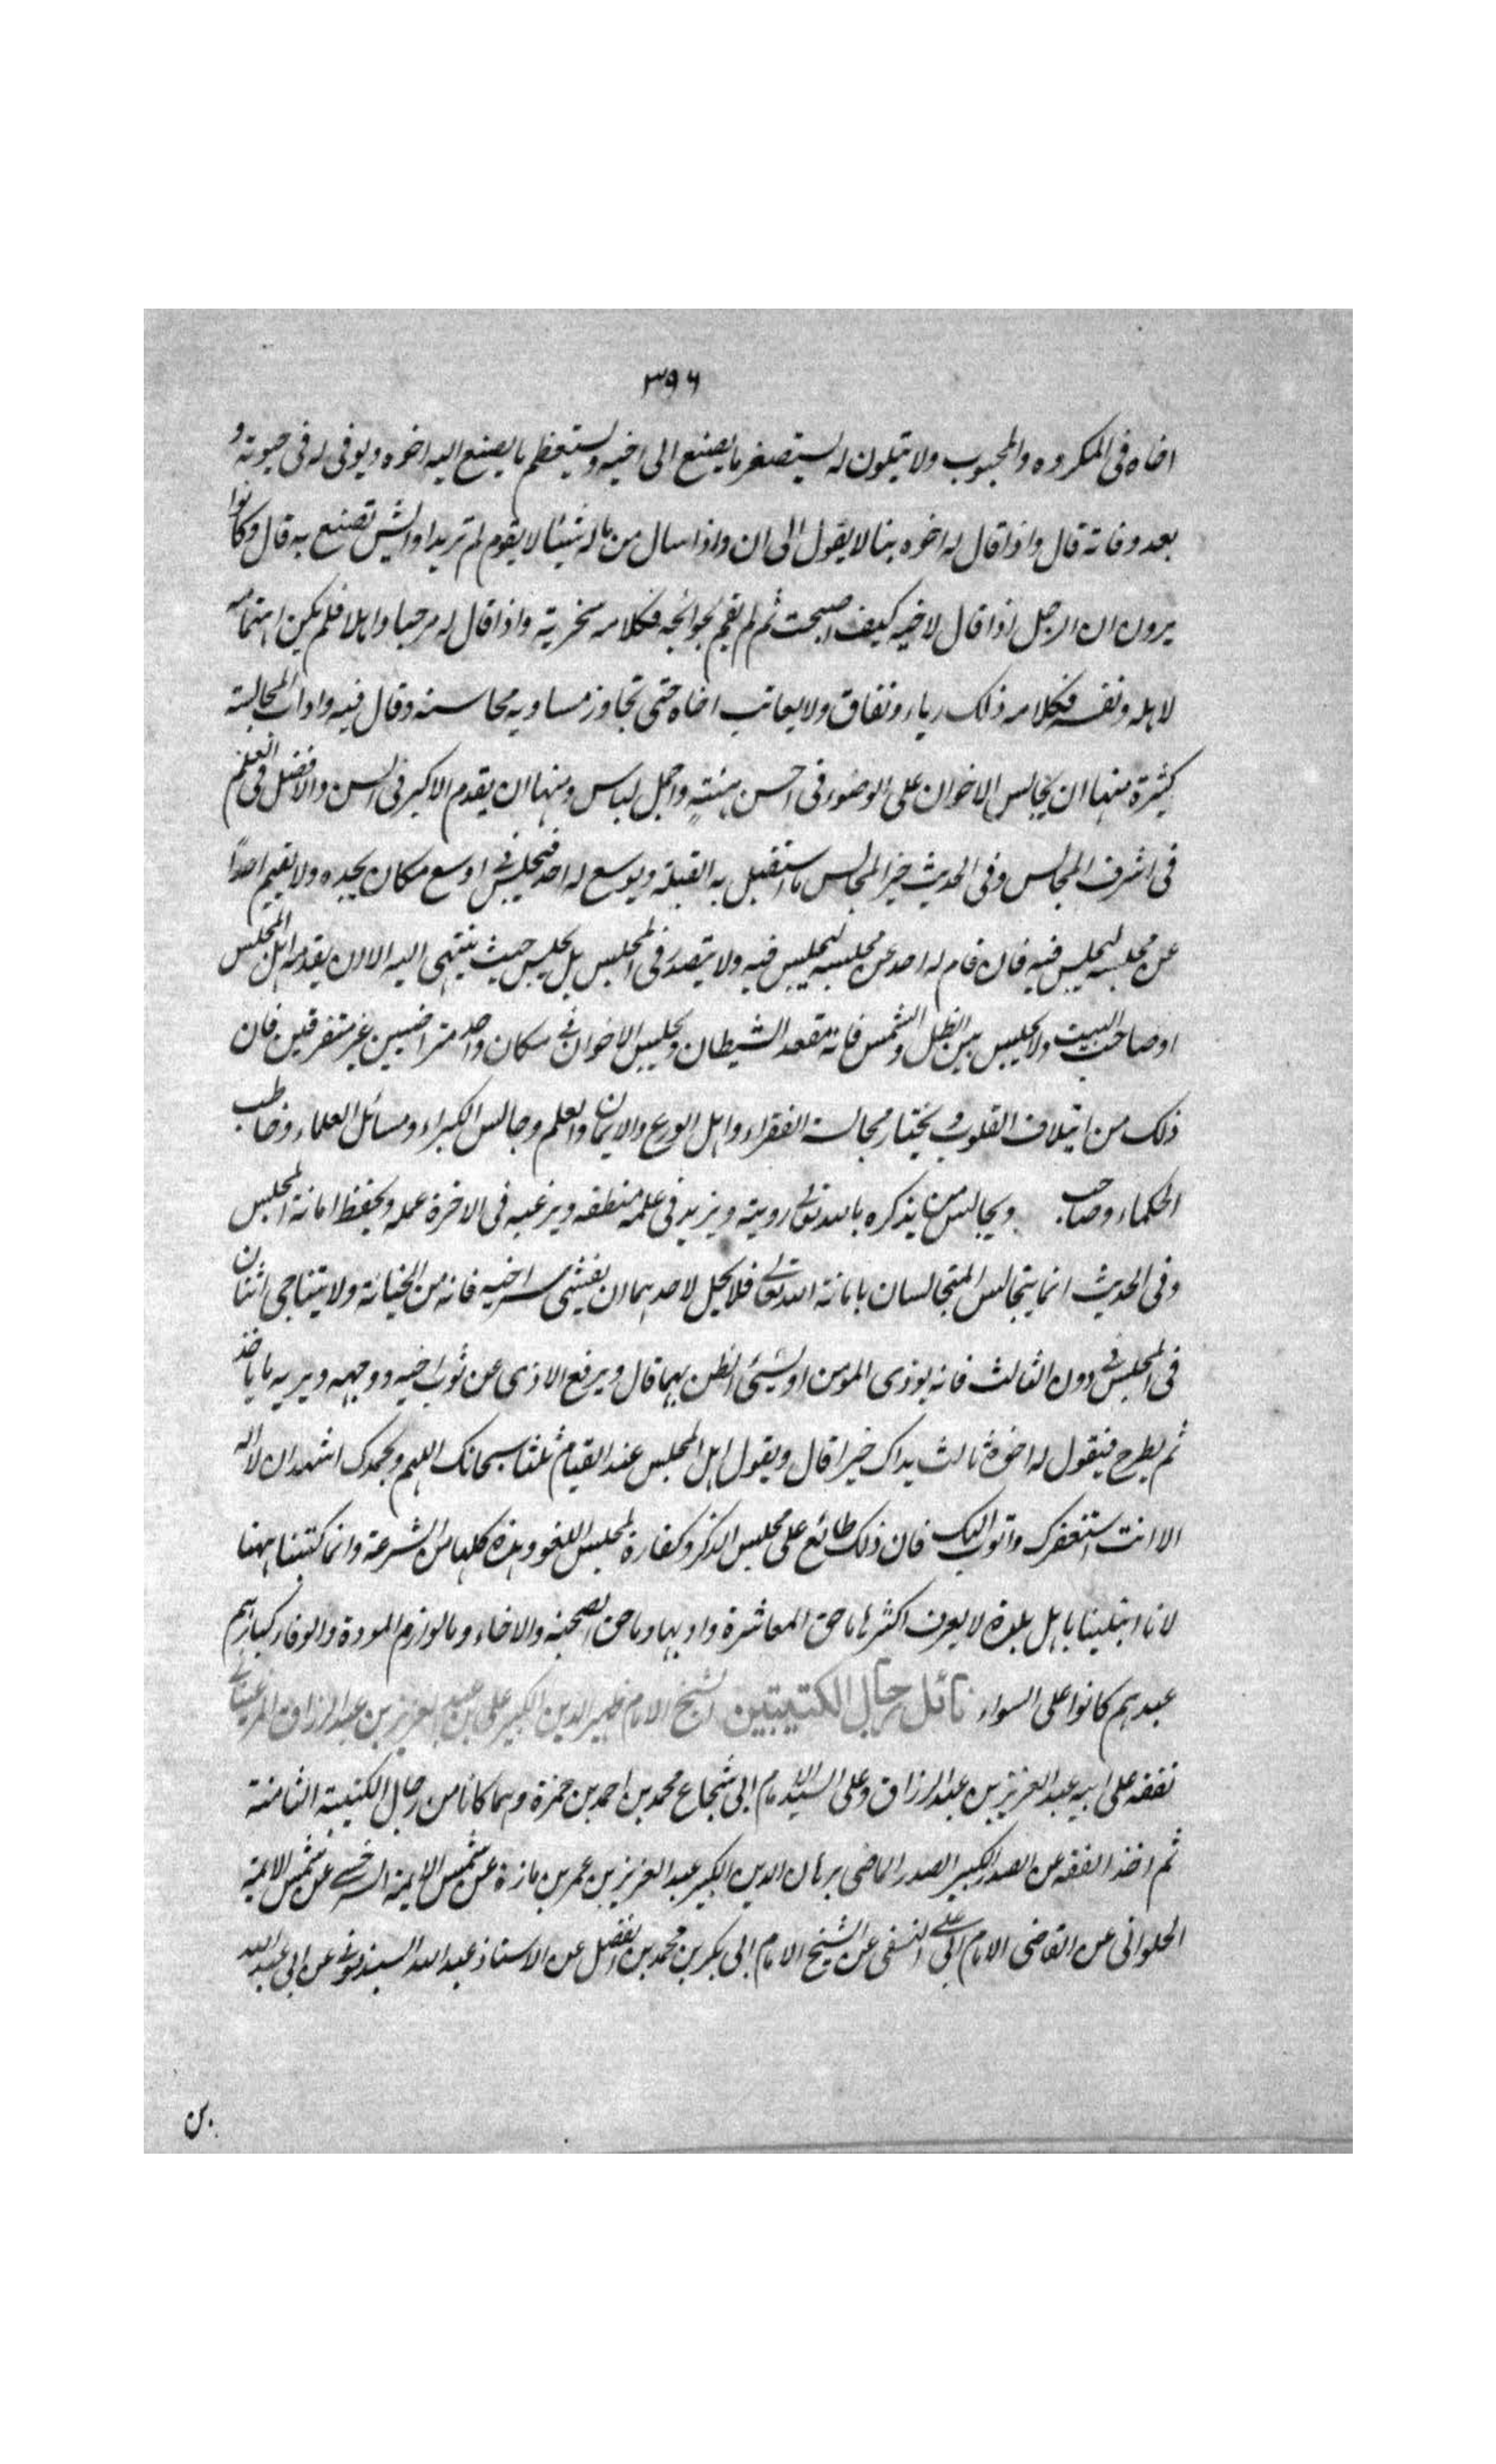 ۳۹۶
اخاه فی المکروه والمحبوب ولا یتلون له یستصغر ما یصنع الی اخیه ویستعظم ما یصنع الیه اخوه ویوفی له فی حیوته و
بعد وفاته قال واذا قال له اخوه بنا لا یقول الی ان واذا سال من ماله شیئا لا یقوم لم ترید او ایش تصنع به قال وکانوا
یرون ان الرجل اذا قال لاخیه کیف اصبحت ثم لم یقم بحوائجه فکلامه سخریة واذا قال له مرحبا واهلا فلم یکن اهتمامه
لاهله ونفسه فکلامه ذلک ریاء ونفاق ولا یعاتب اخاه حتی تجاوز مساویه محاسنه وقال فیه واداب المجالسة
کثیرة منها ان یجالس الاخوان علی الوضوء فی احسن هیئةٍ واجمل لباس ومنها ان یقدم الاکبر فی السن والافضل فی العلم
فی اشرف المجالس وفی الحدیث خیر المجالس ما استقبل به القبلة ویوسع له احد فیجلس فی اوسع مکان یجده ولا یقیم احداً
عن مجلسه لیجلس فیه فان قام له احد عن مجلسه لیجلس فیه ولا یتصدر فی المجلس بل یجلس حیث ینتهی الیه الا ان یقدمه اهل المجلس
او صاحب البیت ولا یجلس بین الظل والشمس فانه مقعد الشیطان ویجلس الاخوان فی مکان واحد متراضیین غیر متفرقین فان
ذلک من ایتلاف القلوب ویختار مجالسة الفقراء واهل الورع والایمان والعلم وجالس الکبراء ومسائل العلماء وخاطب
الحکماء وصاحب ویجالس من یذکره بالله تعالی رویته ویزید فی علمه منطقه ویرغبه فی الاخرة عمله ویحفظ امانة المجلس
وفی الحدیث انما یتجالس المتجالسان بامانة الله تعالی فلا یحل لاحدهما ان یفشی سر اخیه فانه من الخیانة ولا یتناجی اثنان
فی المجلس دون الثالث فانه یوذی المومن او یسئی الظن بهما قال ویرفع الاذی عن ثوب اخیه ووجهه ویریه ما یاخذ
ثم یطرح فیقول له اخوه ثالث یداک خیرا قال ویقول اهل المجلس عند القیام ثلثا سبحانک اللهم وبحمدک اشهد ان لا اله
الا انت استغفرک واتوب الیک فان ذلک طائع علی مجلس الذکر وکفارة لمجلس اللغو وهذه کلها من الشرعة وانما کتبنا ههنا
لانا ابتلینا باهل بلدة لا یعرف اکثرها ما حق المعاشرة وادبها وما حق الصحبة والاخاء وما لوازم المودة والوفاء کبارهم
عبدهم کانوا علی السواء نائل رجال الکتیبتین الشیخ الامام ظهیر الدین الکبیر علی بن عبد العزیز بن عبد الرزاق المرغینانی
تفقه علی ابیه عبد العزیز بن عبد الرزاق وعلی السید الامام ابی شجاع محمد بن احمد بن حمزة وهما کانا من رجال الکتیبة الثامنة
ثم اخذ الفقه عن الصدر الکبیر الصدر الماضی برهان الدین الکبیر عبد العزیز بن عمر بن مازة عن شمس الایمة السرخسی عن شمس الایمة
الحلوانی عن القاضی الامام ابی علی النسفی عن الشیخ الامام ابی بکر بن محمد بن الفضل عن الاستاذ عبد الله السبذمونی عن ابی عبد الله
بن